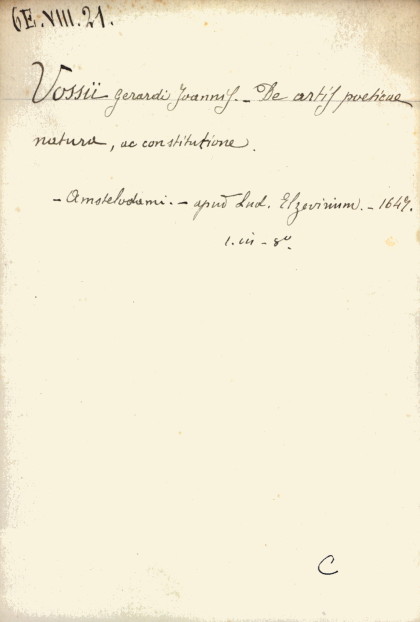 6E.VIII.21.
Vossii Gerardi Joannis. – De artis poeticae
natura, ac constitutione.
– Amstelodami. – apud Lud. Elzevirium. – 1647.
1. in – 8º.
C